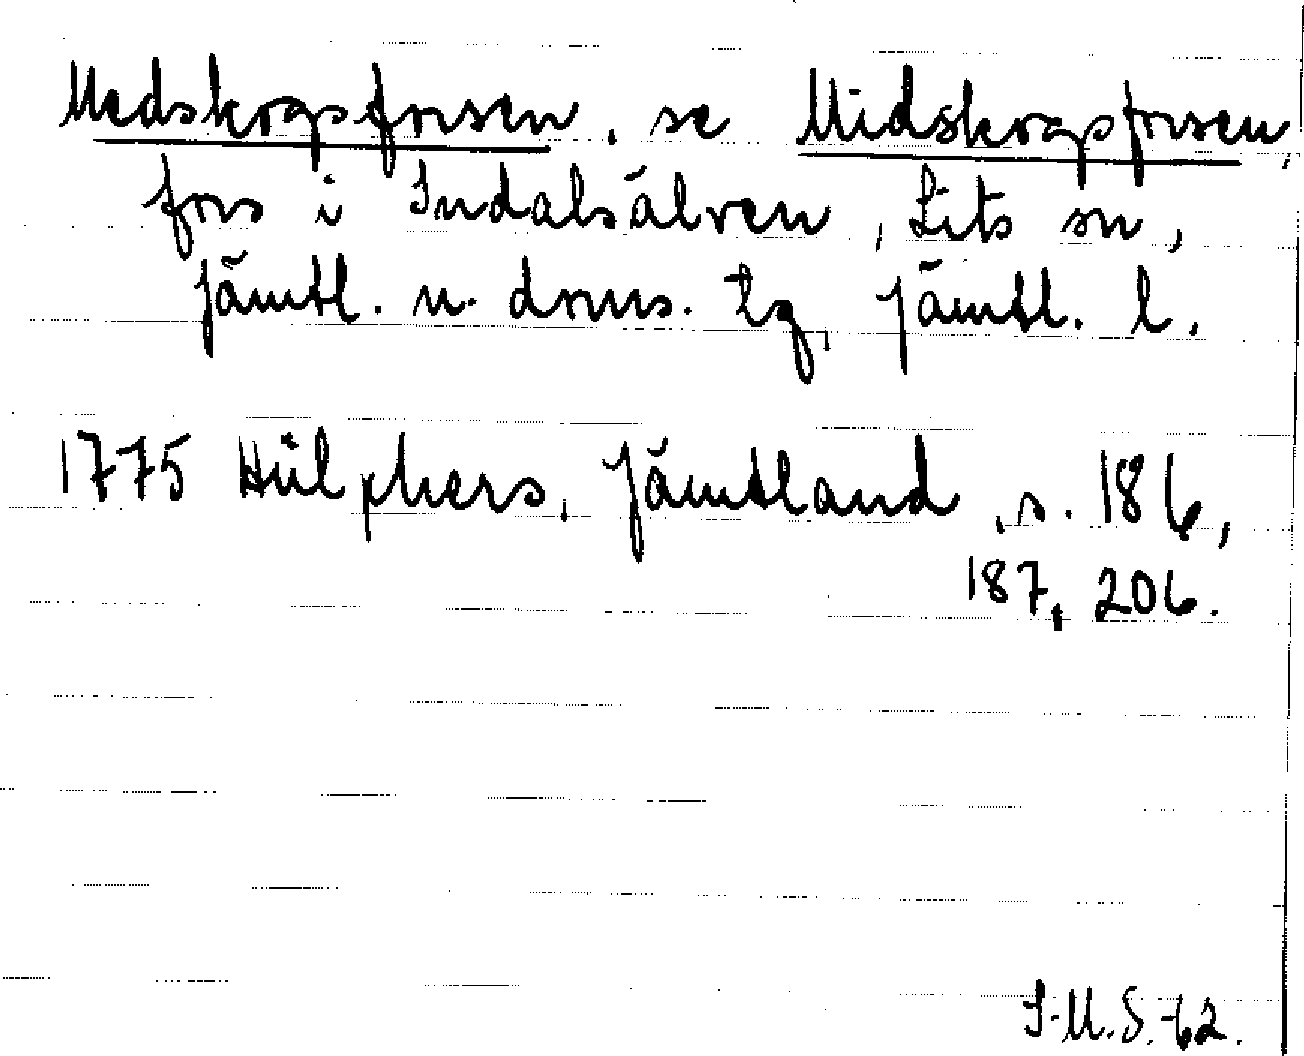 Medskogsforsen, se Midskogsforsen,
fors i Indalsälven, Lits sn,
Jämtl. n. doms. tg, Jämtl. l.
1775 Hülphers, Jämtland, s. 186,
187, 206.
I.M.S.-62.